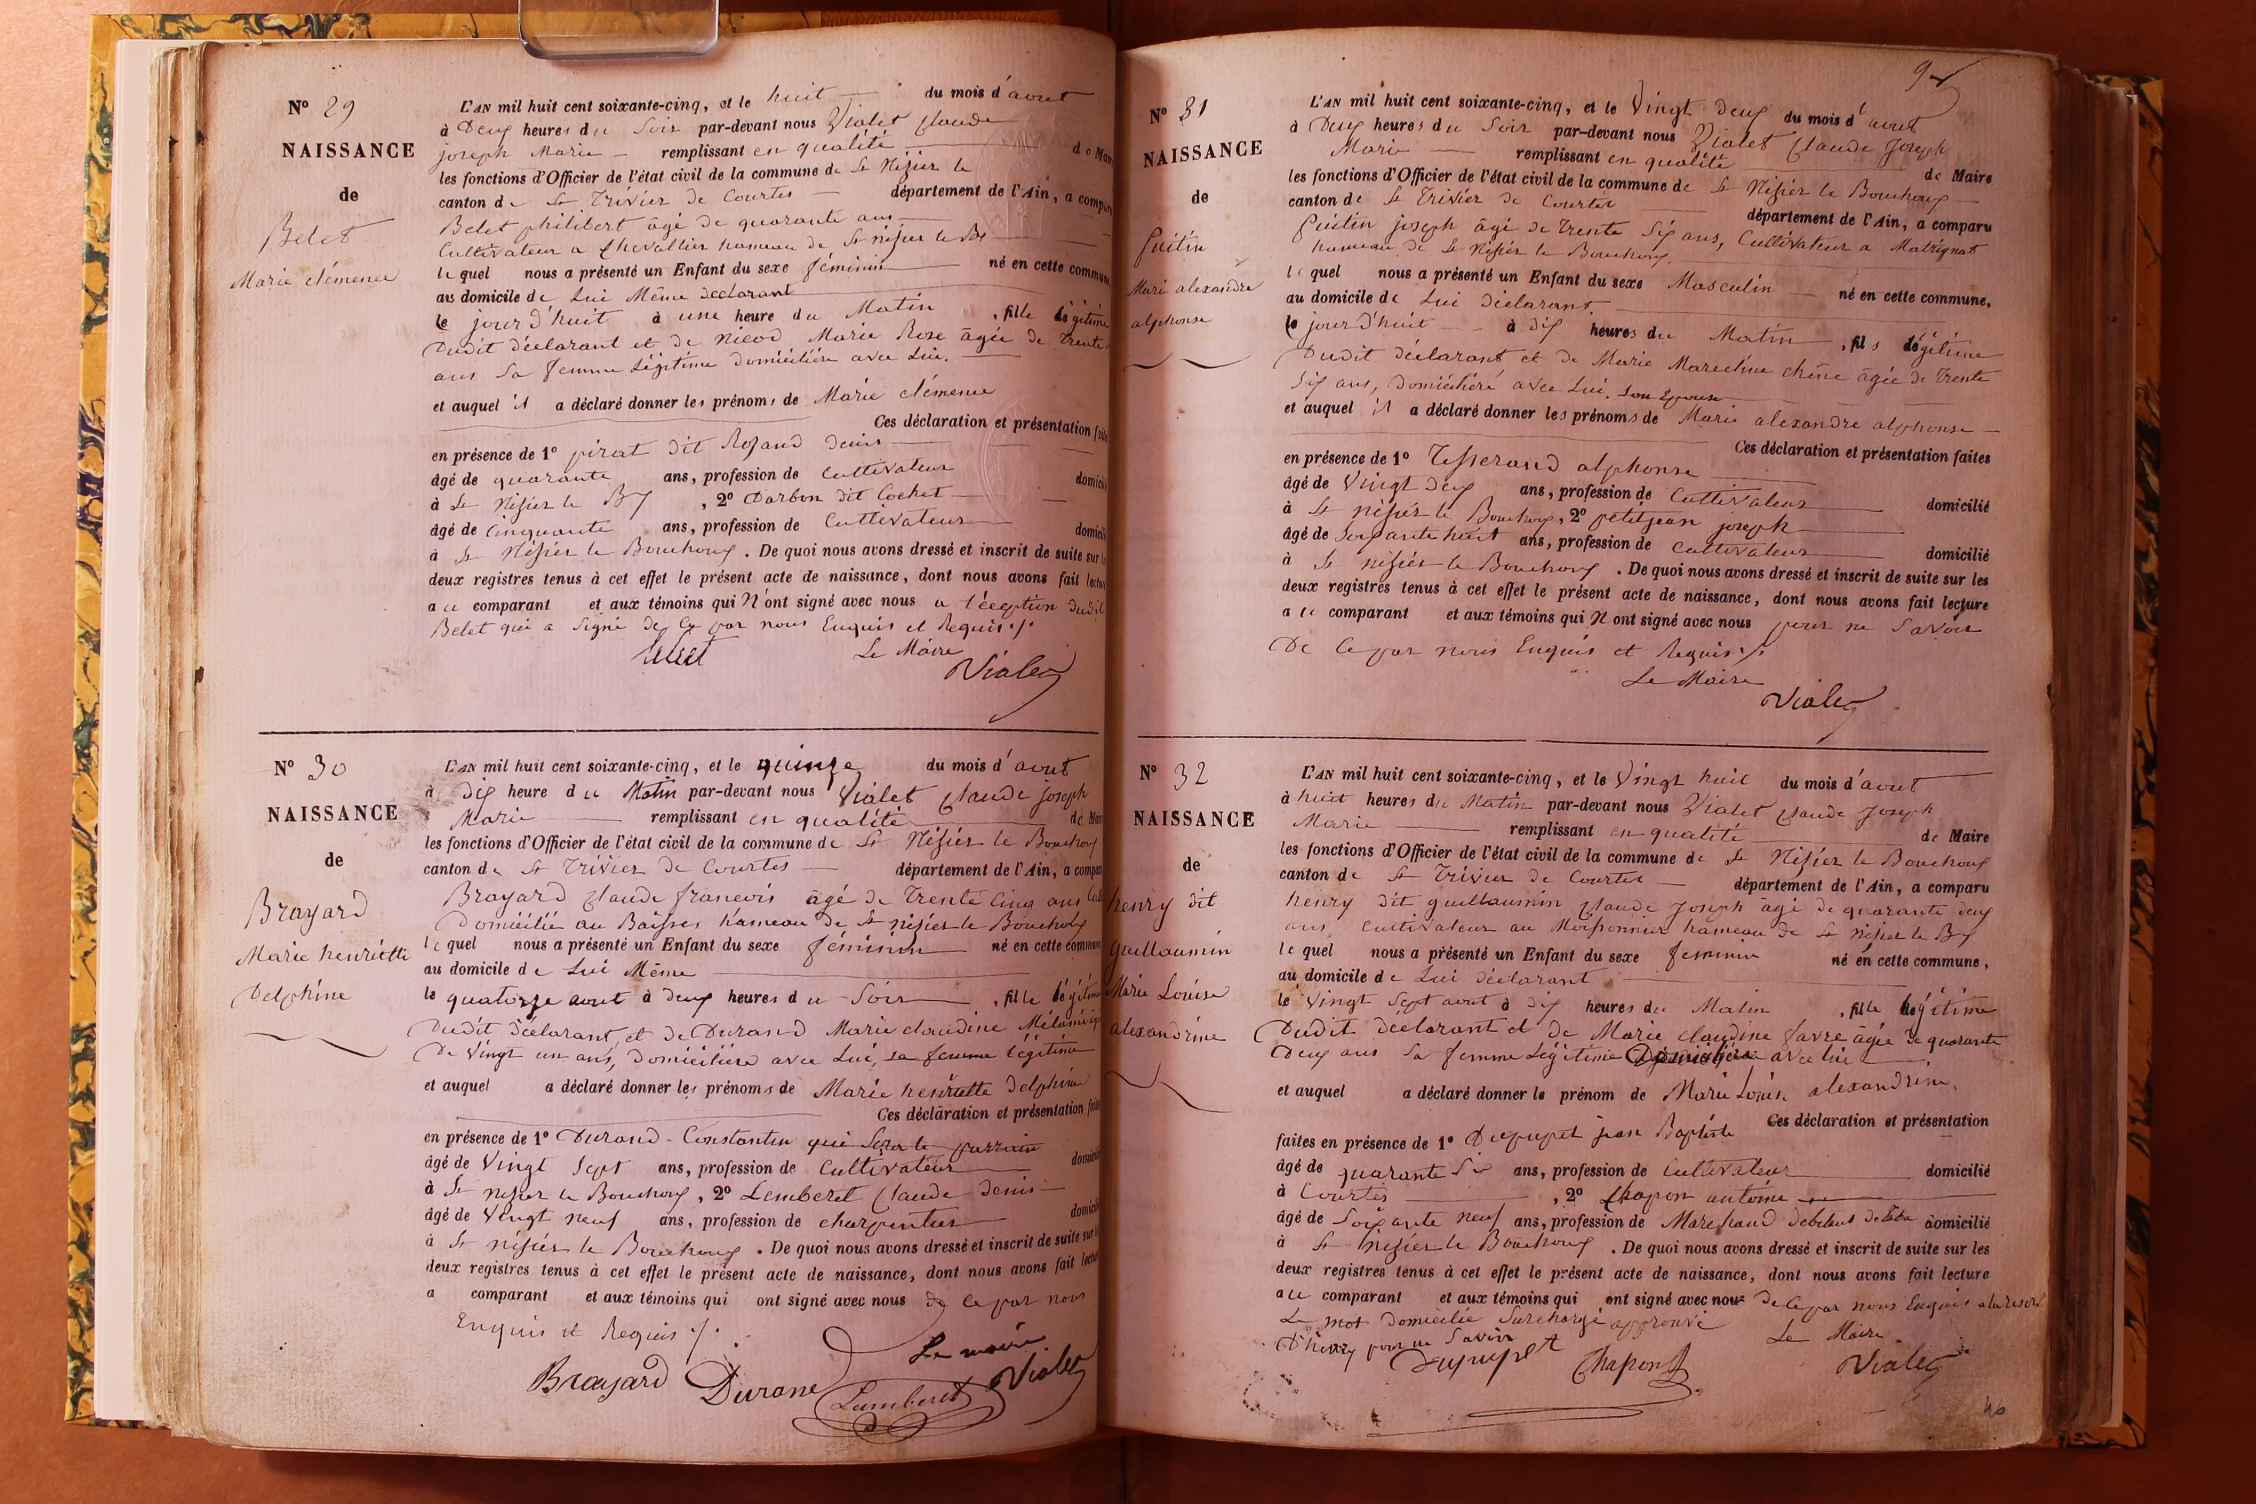 N° 29
NAISSANCE
de
Belet
Marie clémence
L'AN mil huit cent soixante-cinq, et le huit du mois d'aout
à Deux heures du Soir par-devant nous Vialet Claude
joseph Marie remplissant en qualité de Mai
les fonctions d'Officier de l'état civil de la commune de St Nisier le
canton de St Trivier de Courtes département de l'Ain, a compar
Belet philibert âgé de quarante ans
Cultivateur a Chevallier hameau de St nisier le B
le quel nous a présenté un Enfant du sexe féminin né en cette commune
au domicile de Lui Même declarant
le jour d'huit à une heure du Matin , fille légitime
Dudit déclarant et de nicod Marie Rose âgée de trente
ans Sa femme Légitime domiciliée avec Lui.
et auquel il a déclaré donner les prénoms de Marie clémence
Ces déclaration et présentation faite
en présence de 1° pirat dit Rojaud denis
âgé de quarante ans, profession de Cultivateur domicil
à St Nisier le By , 2° Darbon dit Cochet
âgé de Cinquante ans, profession de Cultivateur domicil
à St Nisier le Bouchoux . De quoi nous avons dressé et inscrit de suite sur l
deux registres tenus à cet effet le présent acte de naissance, dont nous avons fait lectur
a ce comparant et aux témoins qui N'ont signé avec nous a l'éception dudit
Belet qui a Signé de Ce par nous Enquis et Requis ./.
Belet Le Maire
Vialet
N° 30
NAISSANCE
de
Brayard
Marie henriette
Delphine
L'AN mil huit cent soixante-cinq, et le quinze du mois d'aout
à dix heure du Matin par-devant nous Vialet Claude Joseph
Marie remplissant en qualité de Mai
les fonctions d'Officier de l'état civil de la commune de St Nisier le Bouchoux
canton de St Trivier de Courtes département de l'Ain, a compar
Brayard Claude francois âgé de Trente Cinq ans
Domicilié au Baisses hameau de St nisier le Bouchoux
le quel nous a présenté un Enfant du sexe féminin né en cette commune
au domicile de Lui Même
le quatorze aout à deux heures du Soir , fille légitime
Dudit déclarant, et de Durand Marie claudine
De Vingt un ans, domiciliée avec Lui, sa femme légitime
et auquel a déclaré donner les prénoms de Marie henriette Delphine
Ces déclaration et présentation faite
en présence de 1° Durand Constantin qui Sera le parrain
âgé de Vingt Sept ans, profession de Cultivateur domicil
à St nisier le Bouchoux , 2° Lemberet Claude denis
âgé de Vingt neuf ans, profession de charpentier domicil
à St nisier le Bouchoux . De quoi nous avons dressé et inscrit de suite sur l
deux registres tenus à cet effet le présent acte de naissance, dont nous avons fait lectur
a comparant et aux témoins qui ont signé avec nous de Ce par nous
Enquis et Requis ./.
Le maire
Brayard Durand Lamberet Vialet
N° 31
NAISSANCE
de
Guitin
Mari alexandre
alphonse
L'AN mil huit cent soixante-cinq, et le Vingt deux du mois d'aout
à Deux heures du Soir par-devant nous Vialet Claude Joseph
Marie remplissant en qualité de Maire
les fonctions d'Officier de l'état civil de la commune de St Nisier le Bouchoux
canton de St Trivier de Courtes département de l'Ain, a comparu
Guitin joseph âgé de Trente Six ans, Cultivateur a Matrignat
hameau de St Nisier le Bouchoux
le quel nous a présenté un Enfant du sexe Masculin né en cette commune,
au domicile de Lui déclarant
le jour d'huit à dix heures du Matin , fils légitime
Dudit déclarant et de Marie Marechine chêne âgée de trente
Six ans, Domiciliéré avec Lui. Son Epouse
et auquel il a déclaré donner les prénoms de Marie alexandre alphonse
Ces déclaration et présentation faites
en présence de 1° Tesserand alphonse
âgé de Vingt deux ans, profession de Cultivateur domicilié
à St nisier le Bouchoux, 2° petitjean joseph
âgé de Soixante huit ans, profession de Cultivateur domicilié
à St nisier le Bouchoux . De quoi nous avons dressé et inscrit de suite sur les
deux registres tenus à cet effet le présent acte de naissance, dont nous avons fait lecture
a ce comparant et aux témoins qui N ont signé avec nous pour ne Savoir
De Ce par nous Enquis et Requis ./.
Le Maire
Vialet
N° 32
NAISSANCE
de
henry dit
guillaumin
Marie Louise
alexandrine
L'AN mil huit cent soixante-cinq, et le Vingt huit du mois d'aout
à huit heures du Matin par-devant nous Vialet Claude Joseph
Marie remplissant en qualité de Maire
les fonctions d'Officier de l'état civil de la commune de St Nisier le Bouchoux
canton de St Trivier de Courtes département de l'Ain, a comparu
henry dit guillaumin Claude Joseph âgé de quarante deux
ans, cultivateur au Moissonnier hameau de St nisier le By
le quel nous a présenté un Enfant du sexe feminin né en cette commune,
au domicile de Lui déclarant
le Vingt Sept aout à dix heures du Matin , fille légitime
Dudit déclarant et de Marie claudine favre âgée de quarante
Deux ans Sa femme Légitime Domiciliée avec lui
et auquel a déclaré donner le prénom de Marie Louise alexandrine.
Ces déclaration et présentation
faites en présence de 1° Dupupet jean Baptiste
âgé de quarante Six ans, profession de Cultivateur domicilié
à Courtes , 2° Chapon antoine
âgé de Soixante neuf ans, profession de Marchand debitant de domicilié
à St nisier le Bouchoux . De quoi nous avons dressé et inscrit de suite sur les
deux registres tenus à cet effet le présent acte de naissance, dont nous avons fait lecture
a ce comparant et aux témoins qui ont signé avec nous de Ce par nous Enquis
Le mot Domiciliée Surchargé approuvé
D'henry pour ne Savoir Le Maire
Dupupet Chapon Vialet